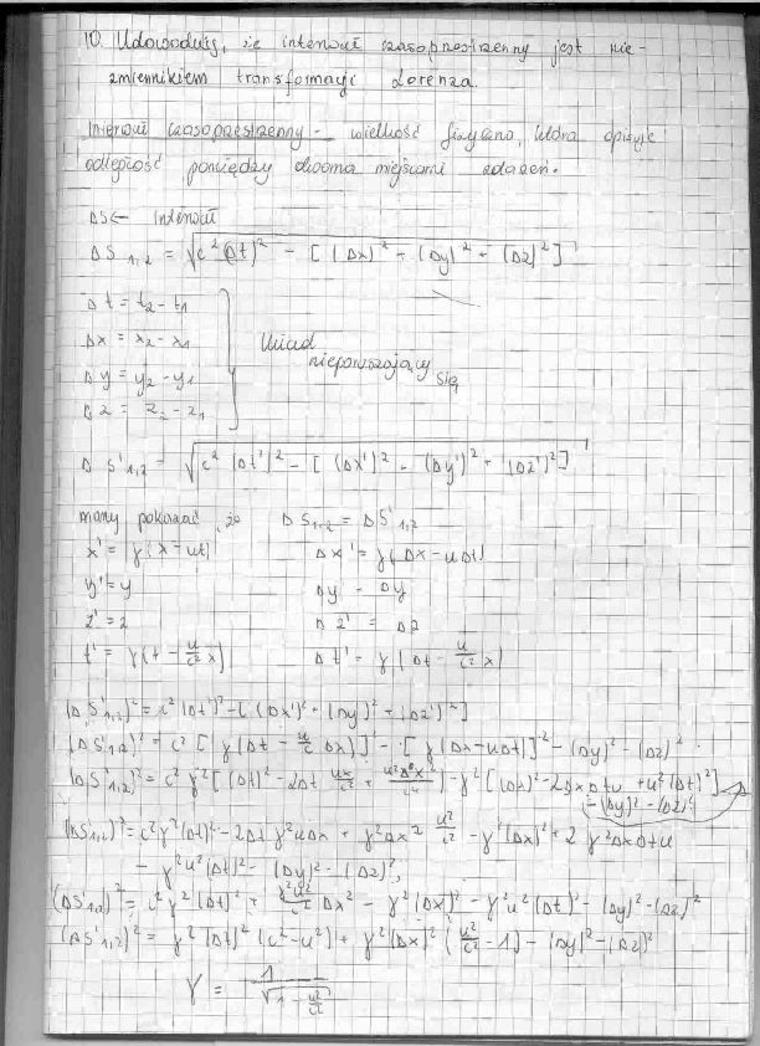 10. Udowodnij, że interwał czasoprzestrzenny jest nie-
zmiennikiem transformacji Lorenza.
Interwał czasoprzestrzenny - wielkość fizyczna, która opisuje
odległość pomiędzy dwoma miejscami zdarzeń.
ΔS ← Interwał
ΔS₁,₂ = √(c²(Δt)² - [(Δx)² + (Δy)² + (Δz)²])
Δt = t₂ - t₁
Δx = x₂ - x₁
Układ
nieporuszający
Δy = y₂ - y₁
się
Δz = z₂ - z₁
ΔS'₁,₂ = √(c²(Δt')² - [(Δx')² - (Δy')² + (Δz')²])
mamy pokazać, że ΔS₁,₂ = ΔS'₁,₂
x' = γ(x - ut) Δx' = γ(Δx - uΔt)
y' = y Δy = Δy
z' = z Δz' = Δz
t' = γ(t - u/c² x) Δt' = γ(Δt - u/c² x)
(ΔS'₁,₂)² = c²(Δt')² - [(Δx')² + (Δy)² + (Δz')²]
(ΔS'₁,₂)² = c²[γ(Δt - u/c Δx)]² - [γ(Δx - uΔt)]² - (Δy)² - (Δz)²
(ΔS'₁,₂)² = c²γ²[(Δt)² - 2Δt ux/c² + u²Δx²/c⁴) - γ²[(Δx)² - 2ΔxΔtu + u²(Δt)²]
- (Δy)² - (Δz)²
(ΔS'₁,₂)² = c²γ²(Δt)² - 2Δt γ²uΔx + γ²Δx² u²/c² - γ²(Δx)² + 2γ²ΔxΔtu
- γ²u²(Δt)² - (Δy)² - (Δz)²,
(ΔS'₁,₂)² = c²γ²(Δt)² + γ²u²/c² Δx² - γ²(Δx)² - γ²u²(Δt)² - (Δy)² - (Δz)²
(ΔS'₁,₂)² = γ²(Δt)²(c² - u²) + γ²(Δx)²(u²/c² - 1) - (Δy)² - (Δz)²
γ = 1/√(1 - u²/c²)